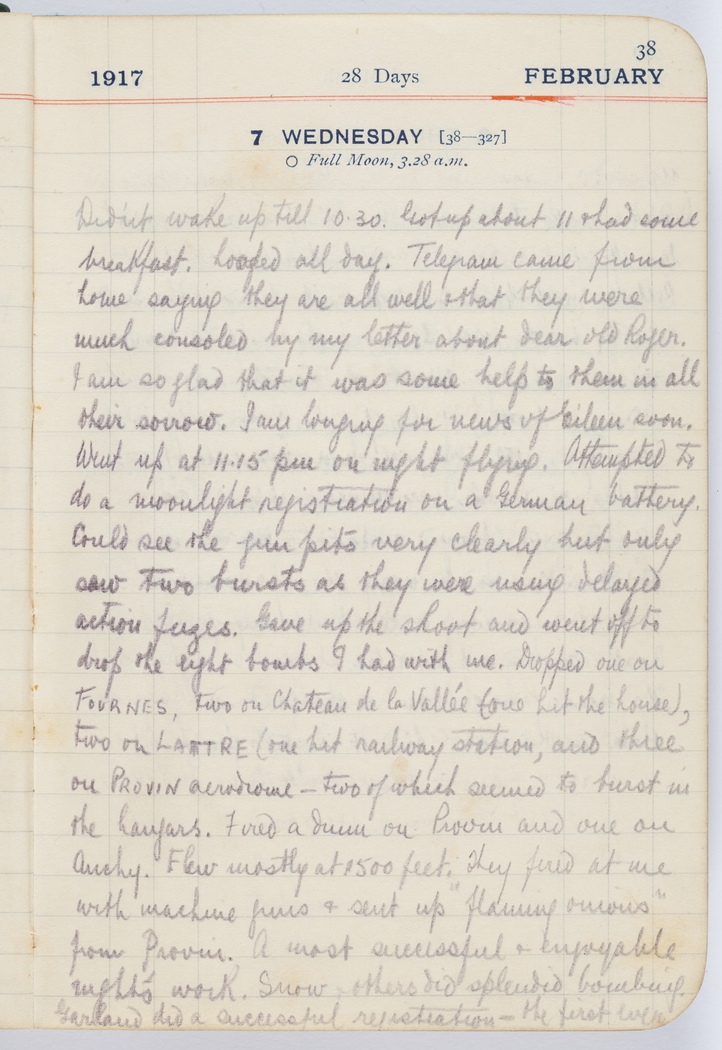 38
1917 28 Days FEBRUARY
7 WEDNESDAY [38—327]
○ Full Moon, 3.28 a.m.
Didn't wake up till 10.30. Got up about 11 & had some
breakfast. Loafed all day. Telegram came from
home saying they are all well & that they were
much consoled by my letter about dear old Roger.
I am so glad that it was some help to them in all
their sorrow. I am longing for news of Eileen soon.
Went up at 11.15 pm on night flying. Attempted to
do a moonlight registration on a German battery.
Could see the gun pits very clearly but only
saw two bursts as they were using delayed
action fuzes. Gave up the shoot and went off to
drop the eight bombs I had with me. Dropped one on
FOURNES, two on Chateau de la Vallée (one hit the house),
two on LATTRE (one hit railway station, and three
on PROVIN aerodrome — two of which seemed to burst in
the hangars. Fired a drum on Provin and one on
Auchy. Flew mostly at 1500 feet. They fired at me
with machine guns & sent up "flaming onions"
from Provin. A most successful & enjoyable
night's work. Snow & others did splendid bombing.
Garland did a successful registration — the first ever